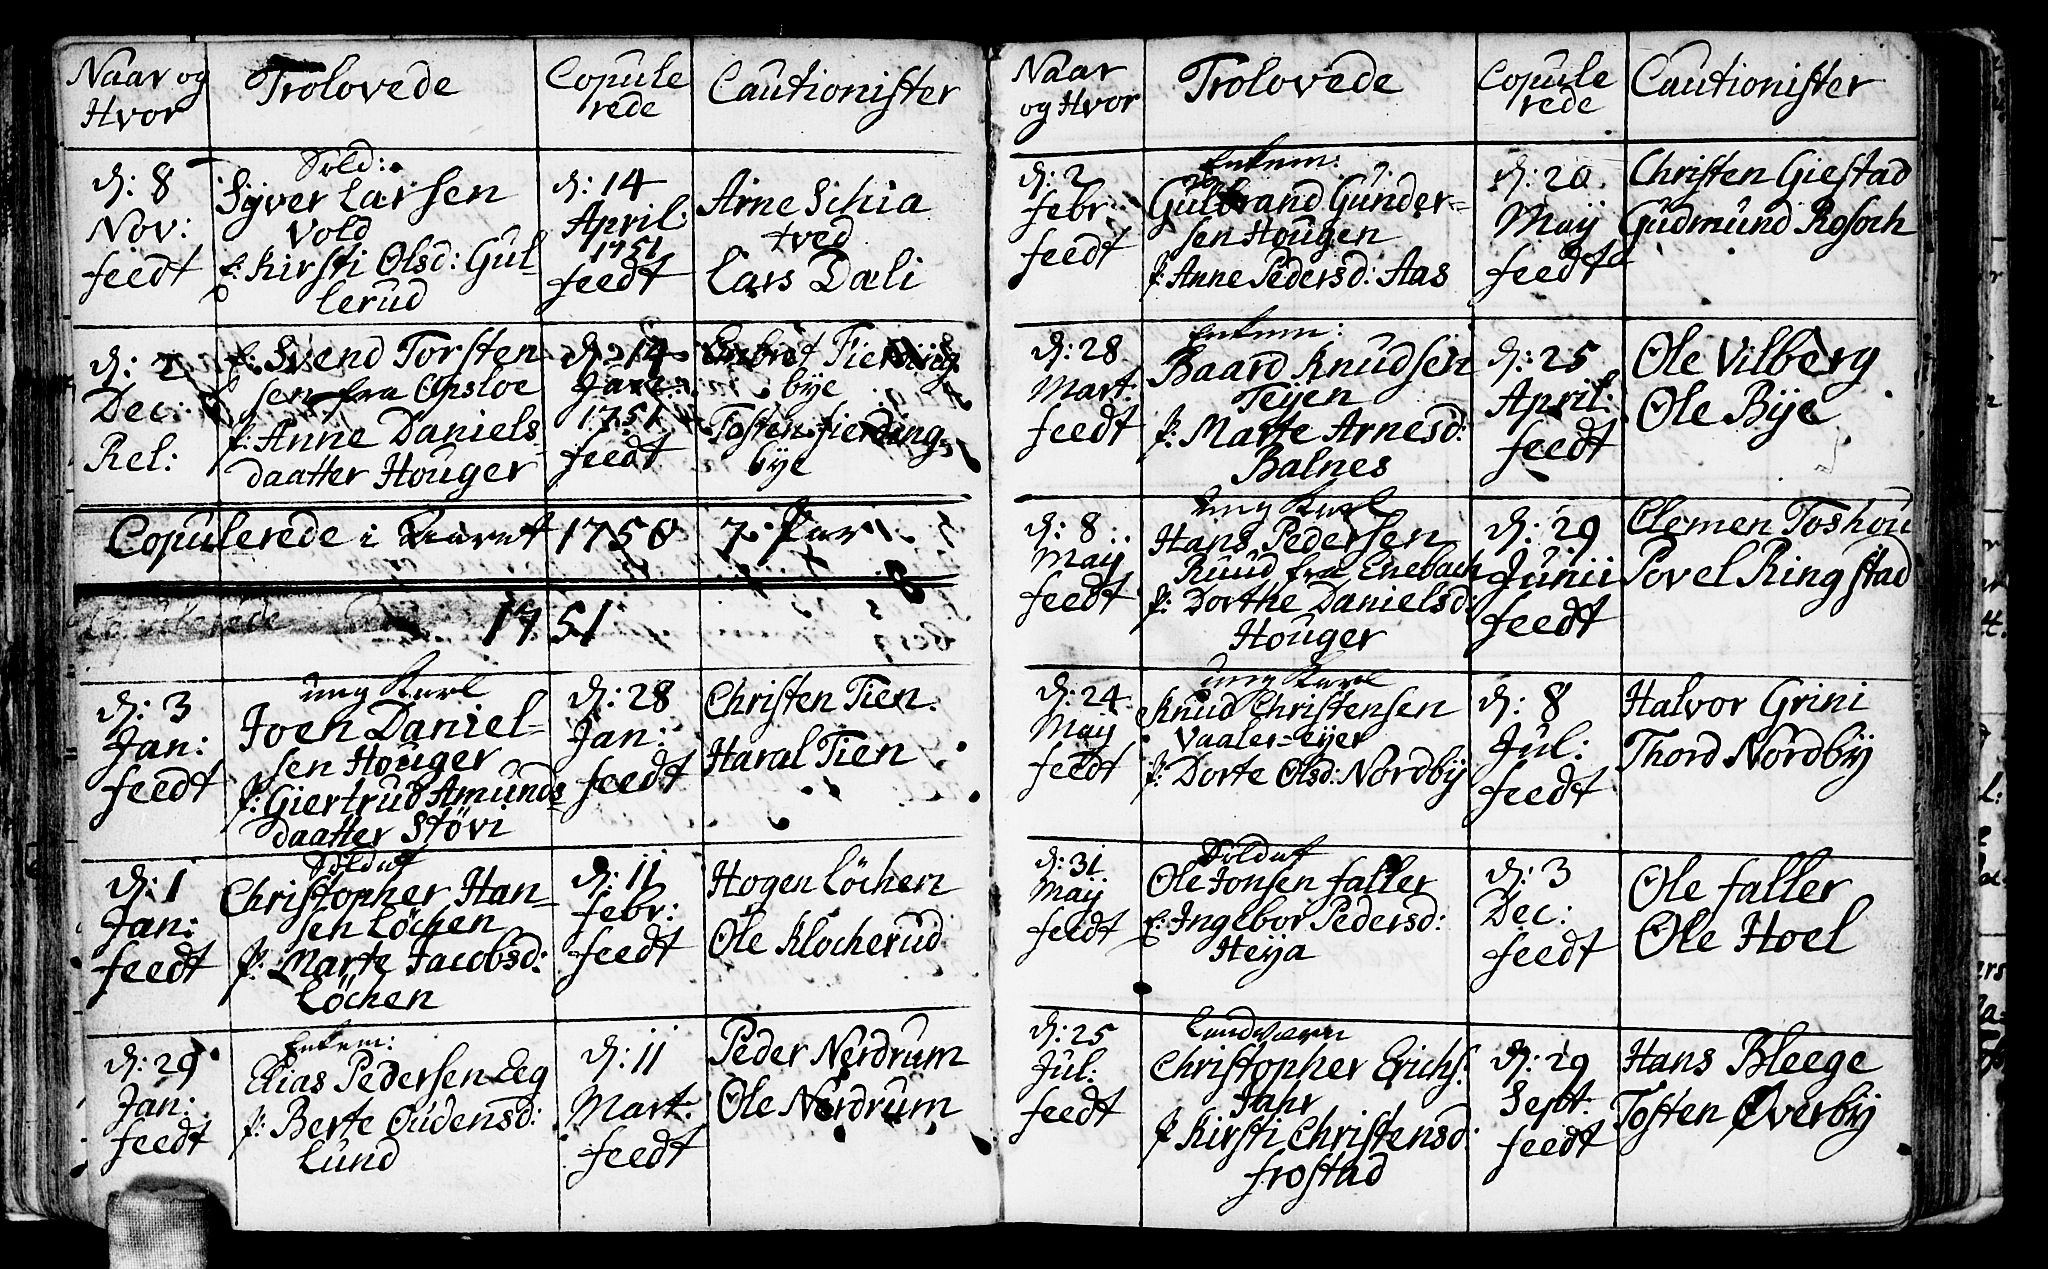 Naar og
Hvor
Trolovede
Copule
rede
Cautionister
d: 8
Nov:
feedt
Sold:
Syver Larsen
Vold
E: Kirsti Olsd: Gul
lerud
d: 14
April
1751
feedt
Arne Schia
tved
Lars Dæli
d: 2
Dec:
Rel:
E: Svend Torsten
sen fra Opsloe
P: Anne Daniels
daatter Houger
d: 14
Jan:
1751
feedt
Embret Fierding
bye
Tosten Fierding
bye
Copulerede i Aaret 1750 7 Par
Copulerede i
1751
d: 3
Jan:
feedt
ung Karl
Joen Daniel-
sen Houger
P: Giertrud Amunds
daatter Støvi
d: 28
Jan:
feedt
Christen Tien
Haral Tien
d: 1
Jan:
feedt
Soldat
Christopher Han-
sen Löchen
P: Marte Jacobsd:
Löchen
d: 11
febr:
feedt
Hogen Löchen
Ole Klocherud
d: 29
Jan:
feedt
Enkem:
Elias Pedersen Eeg
P: Berte Oudensd:
Lund
d: 11
Mart:
feedt
Peder Nerdrum
Ole Nordrum
Naar
og Hvor
Trolovede
Copule
rede
Cautionister
d: 2
febr:
feedt
Enkem:
Gulbrand Gunder-
sen Hougen
P: Anne Pedersd: Aas
d: 20
Maÿ
feedt
Christen Giestad
Gudmund Rosoch
d: 28
Mart:
feedt
Enkem:
Baard Knudsen
Teÿen
P: Marte Arnesd:
Balnes
d: 25
April:
feedt
Ole Vilberg
Ole Bÿe
d: 8
Maÿ
feedt
ung Karl
Hans Pedersen
Ruud fra Enebach
P: Dorthe Danielsd:
Houger
d: 29
Junii
feedt
Clemen Toshou
Povel Ringstad
d: 24
Maÿ
feedt
ung Karl
Knud Christensen
Vaaler-eÿer
P: Dorte Olsd: Nordbÿ
d: 8
Jul:
feedt
Halvor Grini
Thord Nordbÿ
d: 31
Maÿ
feedt
Soldat
Ole Jonsen faller
E: Ingebor Pedersd:
Heÿa
d: 3
Dec:
feedt
Ole faller
Ole Hoel
d: 25
Jul:
feedt
Landværn
Christopher Erichs:
Jahr
P Kirsti Christensd:
frostad
d: 29
Sept:
feedt
Hans Bleege
Tosten Øverbÿ